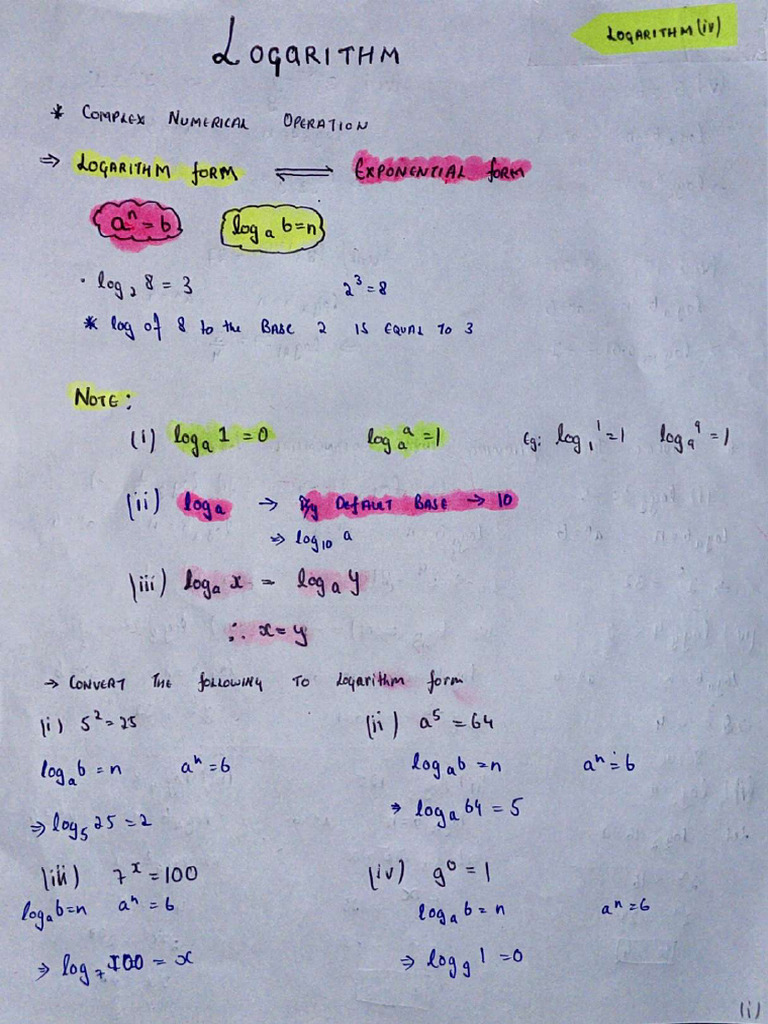 LOGARITHM (iv)
LOGARITHM
* COMPLEX NUMERICAL OPERATION
⇒ LOGARITHM FORM ⇌ EXPONENTIAL FORM
aⁿ = b logₐ b = n
· log₂ 8 = 3 2³ = 8
* log of 8 to the BASE 2 IS EQUAL TO 3
NOTE:
(i) logₐ 1 = 0 logₐ a = 1 Eg: log₁ 1 = 1 log₉ 9 = 1
(ii) log a → By DEFAULT BASE → 10
⇒ log₁₀ a
(iii) logₐ x = logₐ y
∴ x = y
→ CONVERT THE FOLLOWING TO Logarithm form
(i) 5² = 25 (ii) a⁵ = 64
logₐ b = n aⁿ = b logₐ b = n aⁿ = b
⇒ log₅ 25 = 2 ⇒ logₐ 64 = 5
(iii) 7ˣ = 100 (iv) 9⁰ = 1
logₐ b = n aⁿ = b logₐ b = n aⁿ = b
⇒ log₇ 100 = x ⇒ log₉ 1 = 0
(i)